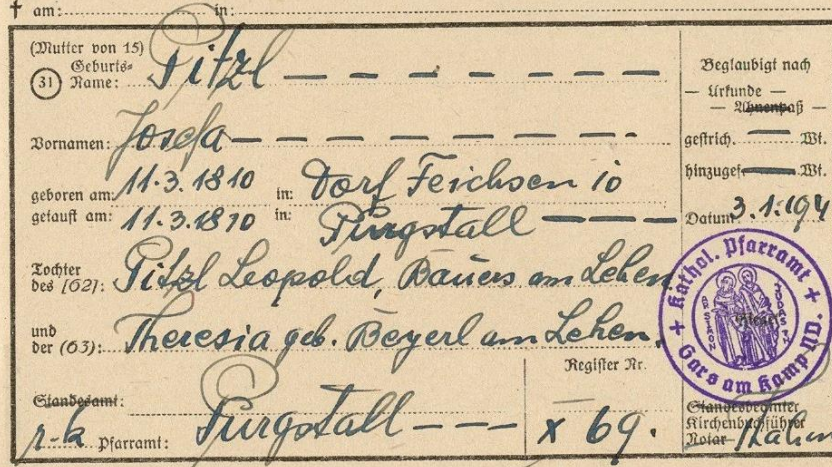 ✝ am: in:
(Mutter von 15)
31 Geburts-Name: Pitzl — — — — — — —
Vornamen: Josefa — — — — — — — —
geboren am: 11.3.1810 in: Dorf Feichsen 10
getauft am: 11.3.1810 in: Purgstall — — —
Tochter des [62]: Pitzl Leopold, Bauers am Lehen
und der (63): Theresia geb. Beyerl am Lehen.
Standesamt:
r.-k Pfarramt: Purgstall — — —
Register Nr.
X 69.
Beglaubigt nach
— Urkunde —
— Ahnenpaß —
gestrich. — Wt.
hinzugef. — Wt.
Datum: 3.1.194
+ Kathol. Pfarramt + Gars am Kamp ND.
Standesbeamter
Kirchenbuchführer
Notar